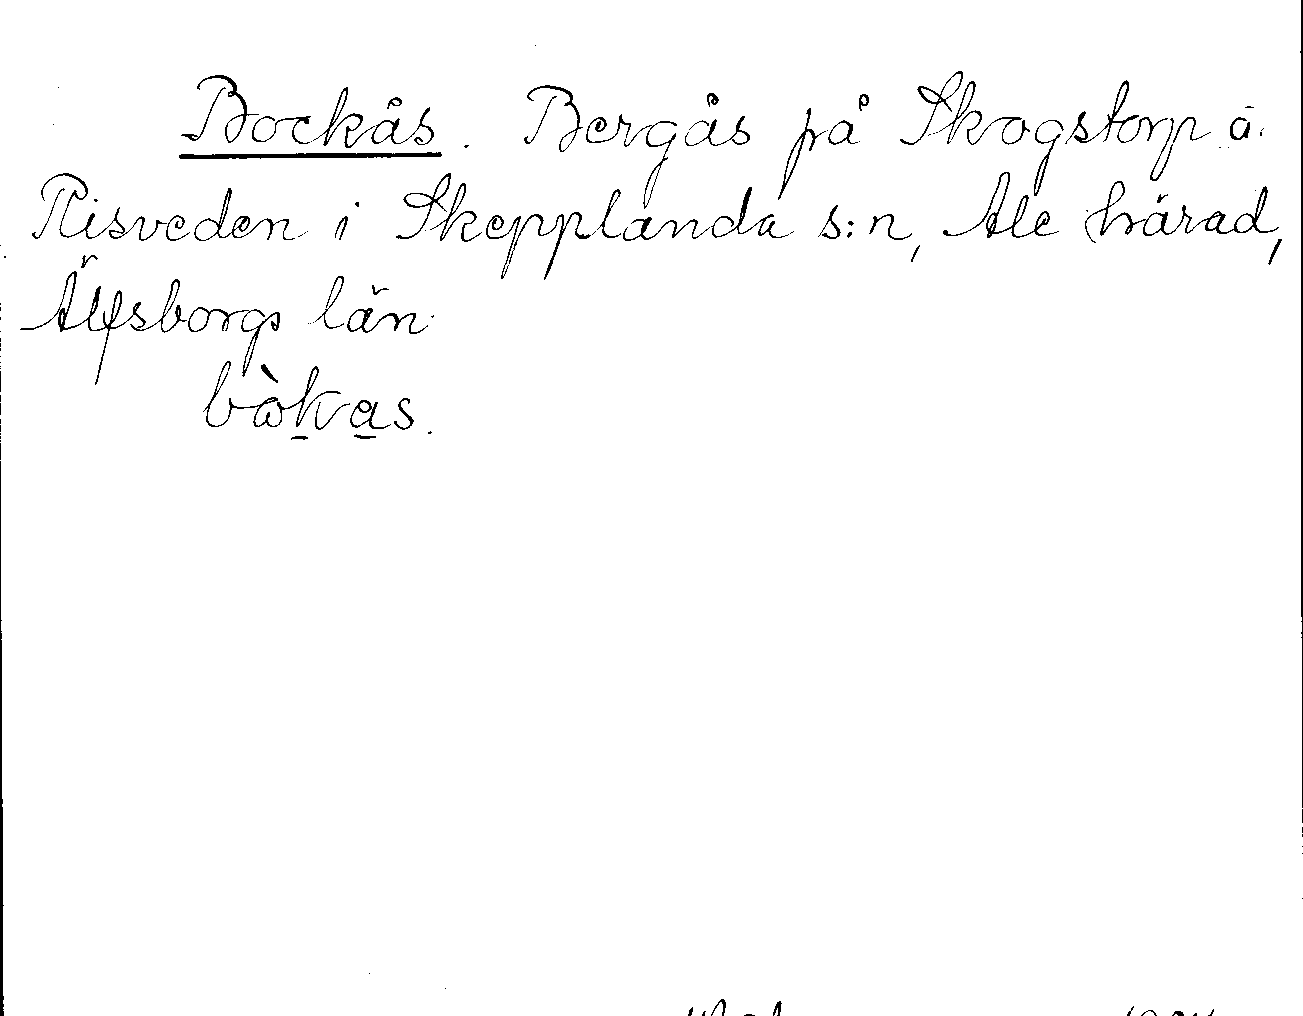 Bockås. Bergås på Skogstorp å
Risveden i Skepplanda s:n, Ale härad,
Älfsborgs län
bὼk̠a̠s.